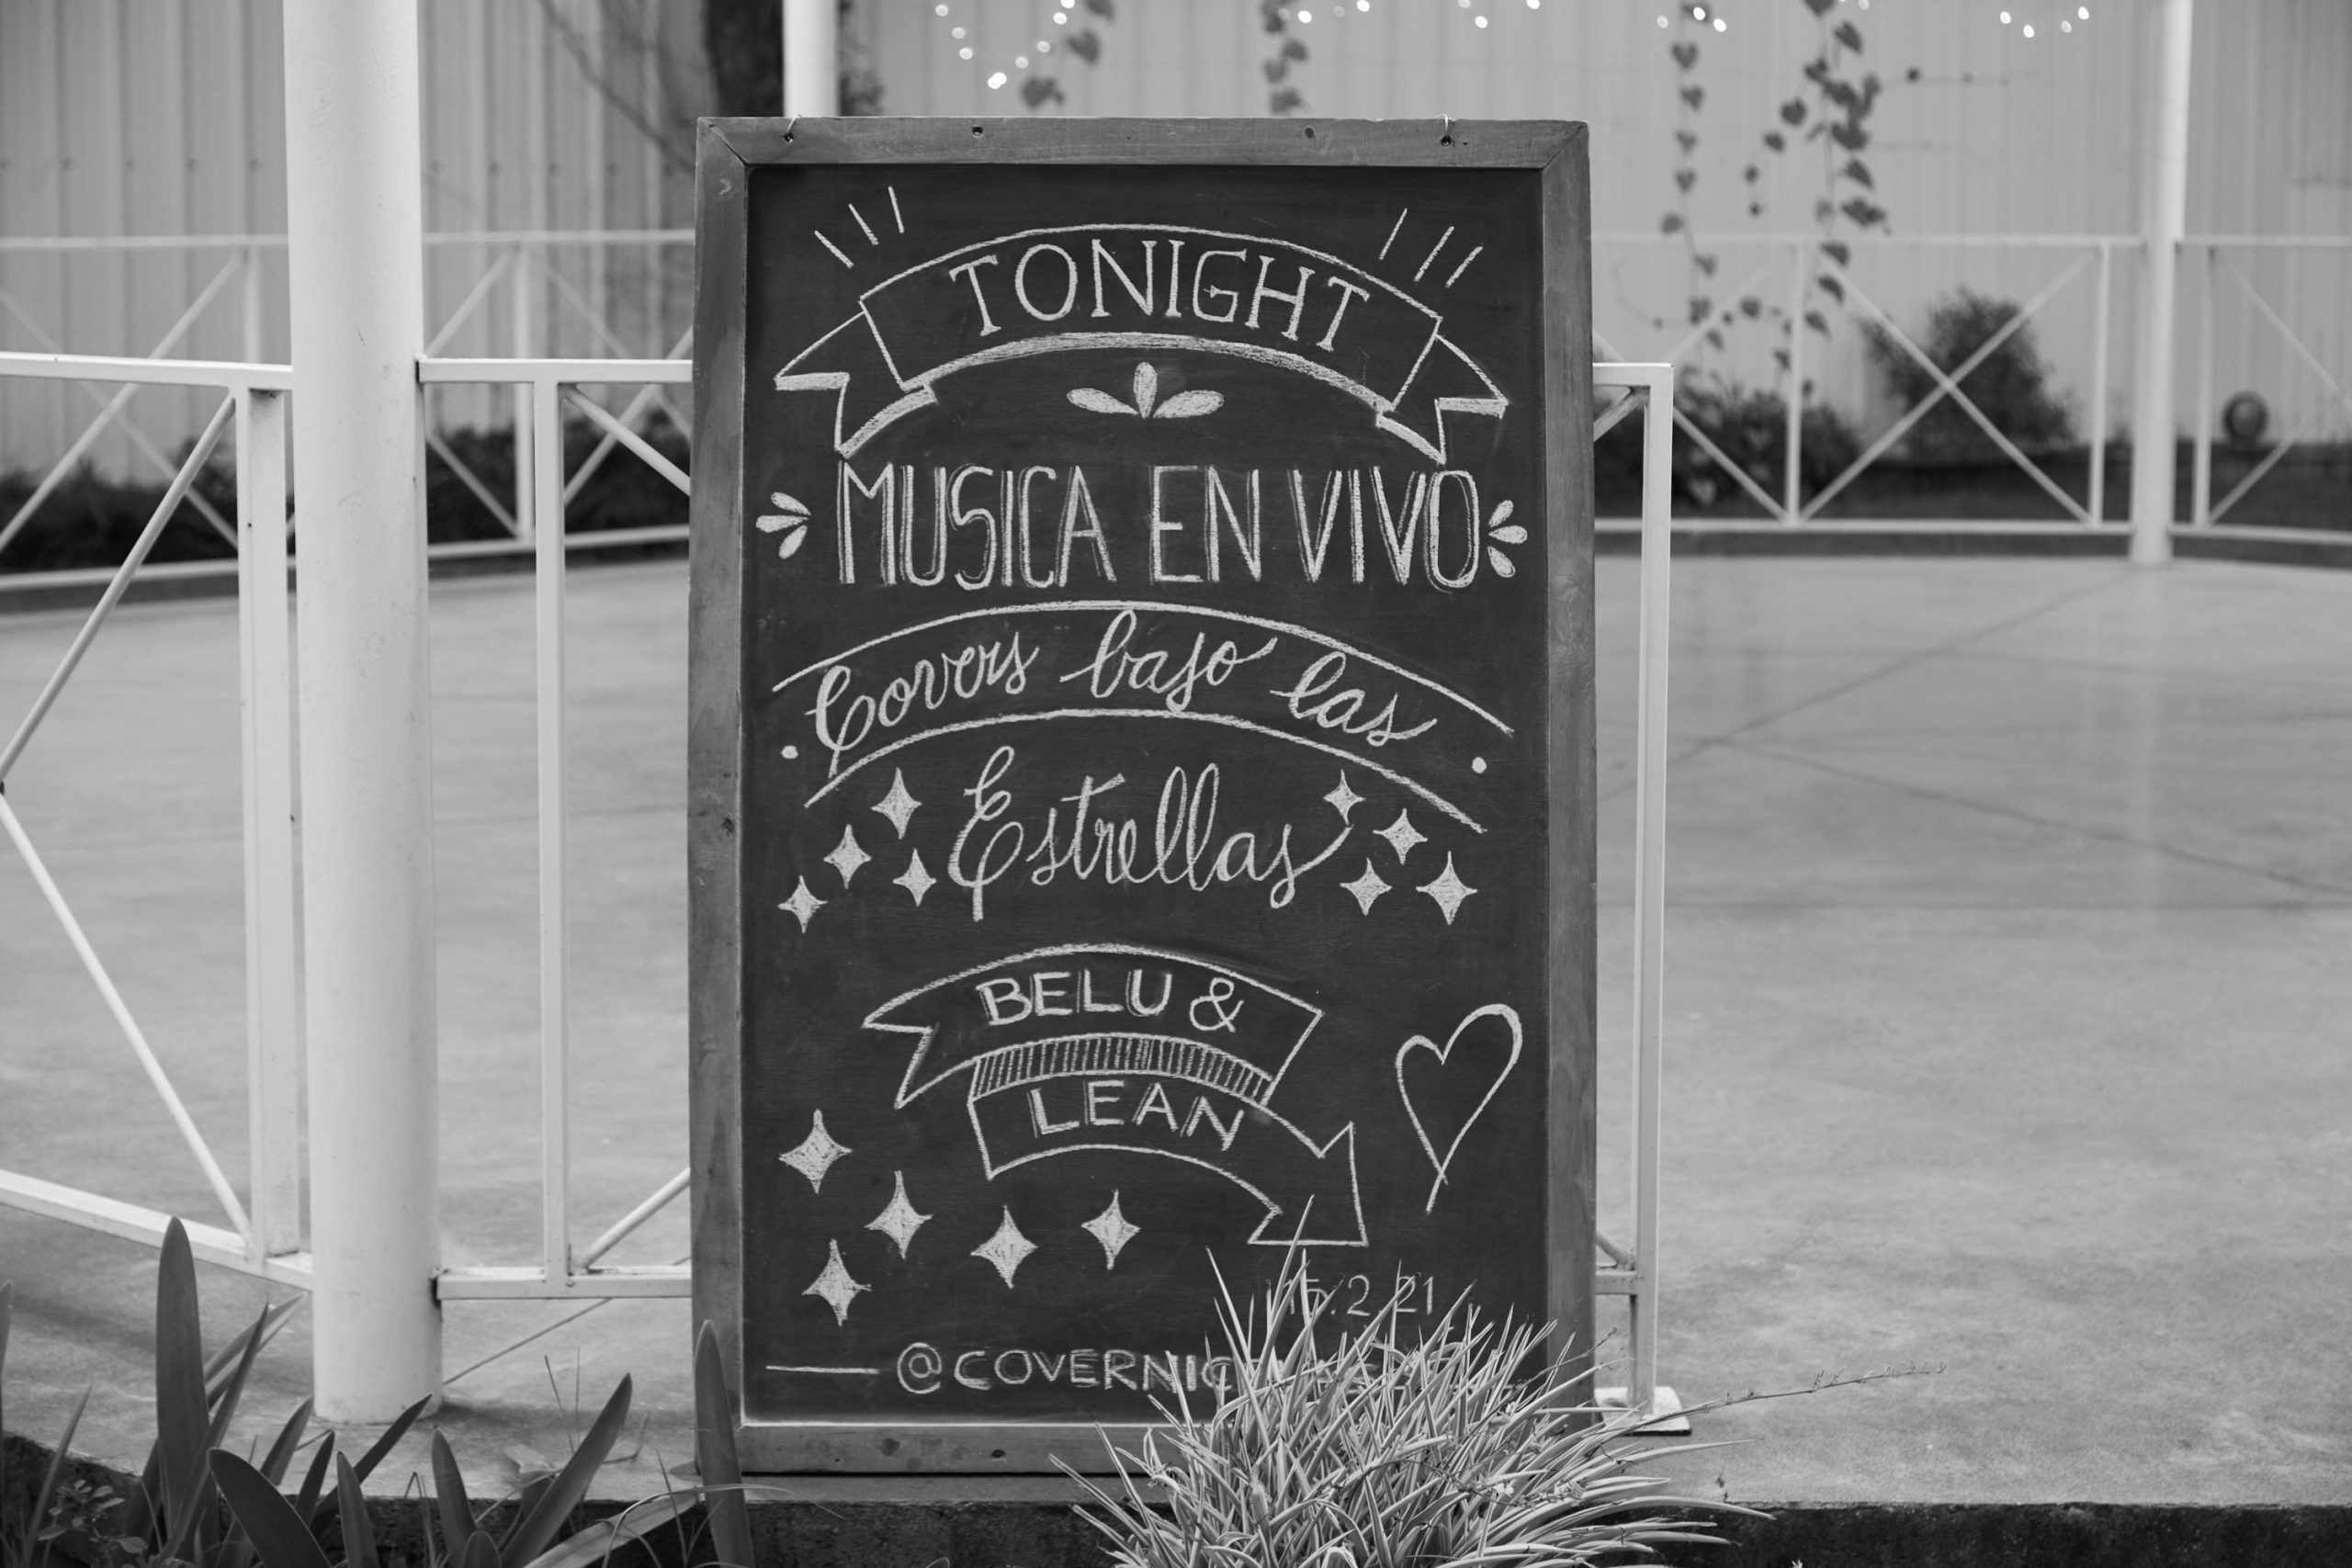 TONIGHT
MUSICA EN VIVO
Covers bajo las
Estrellas
BELU &
LEAN
15.2.21